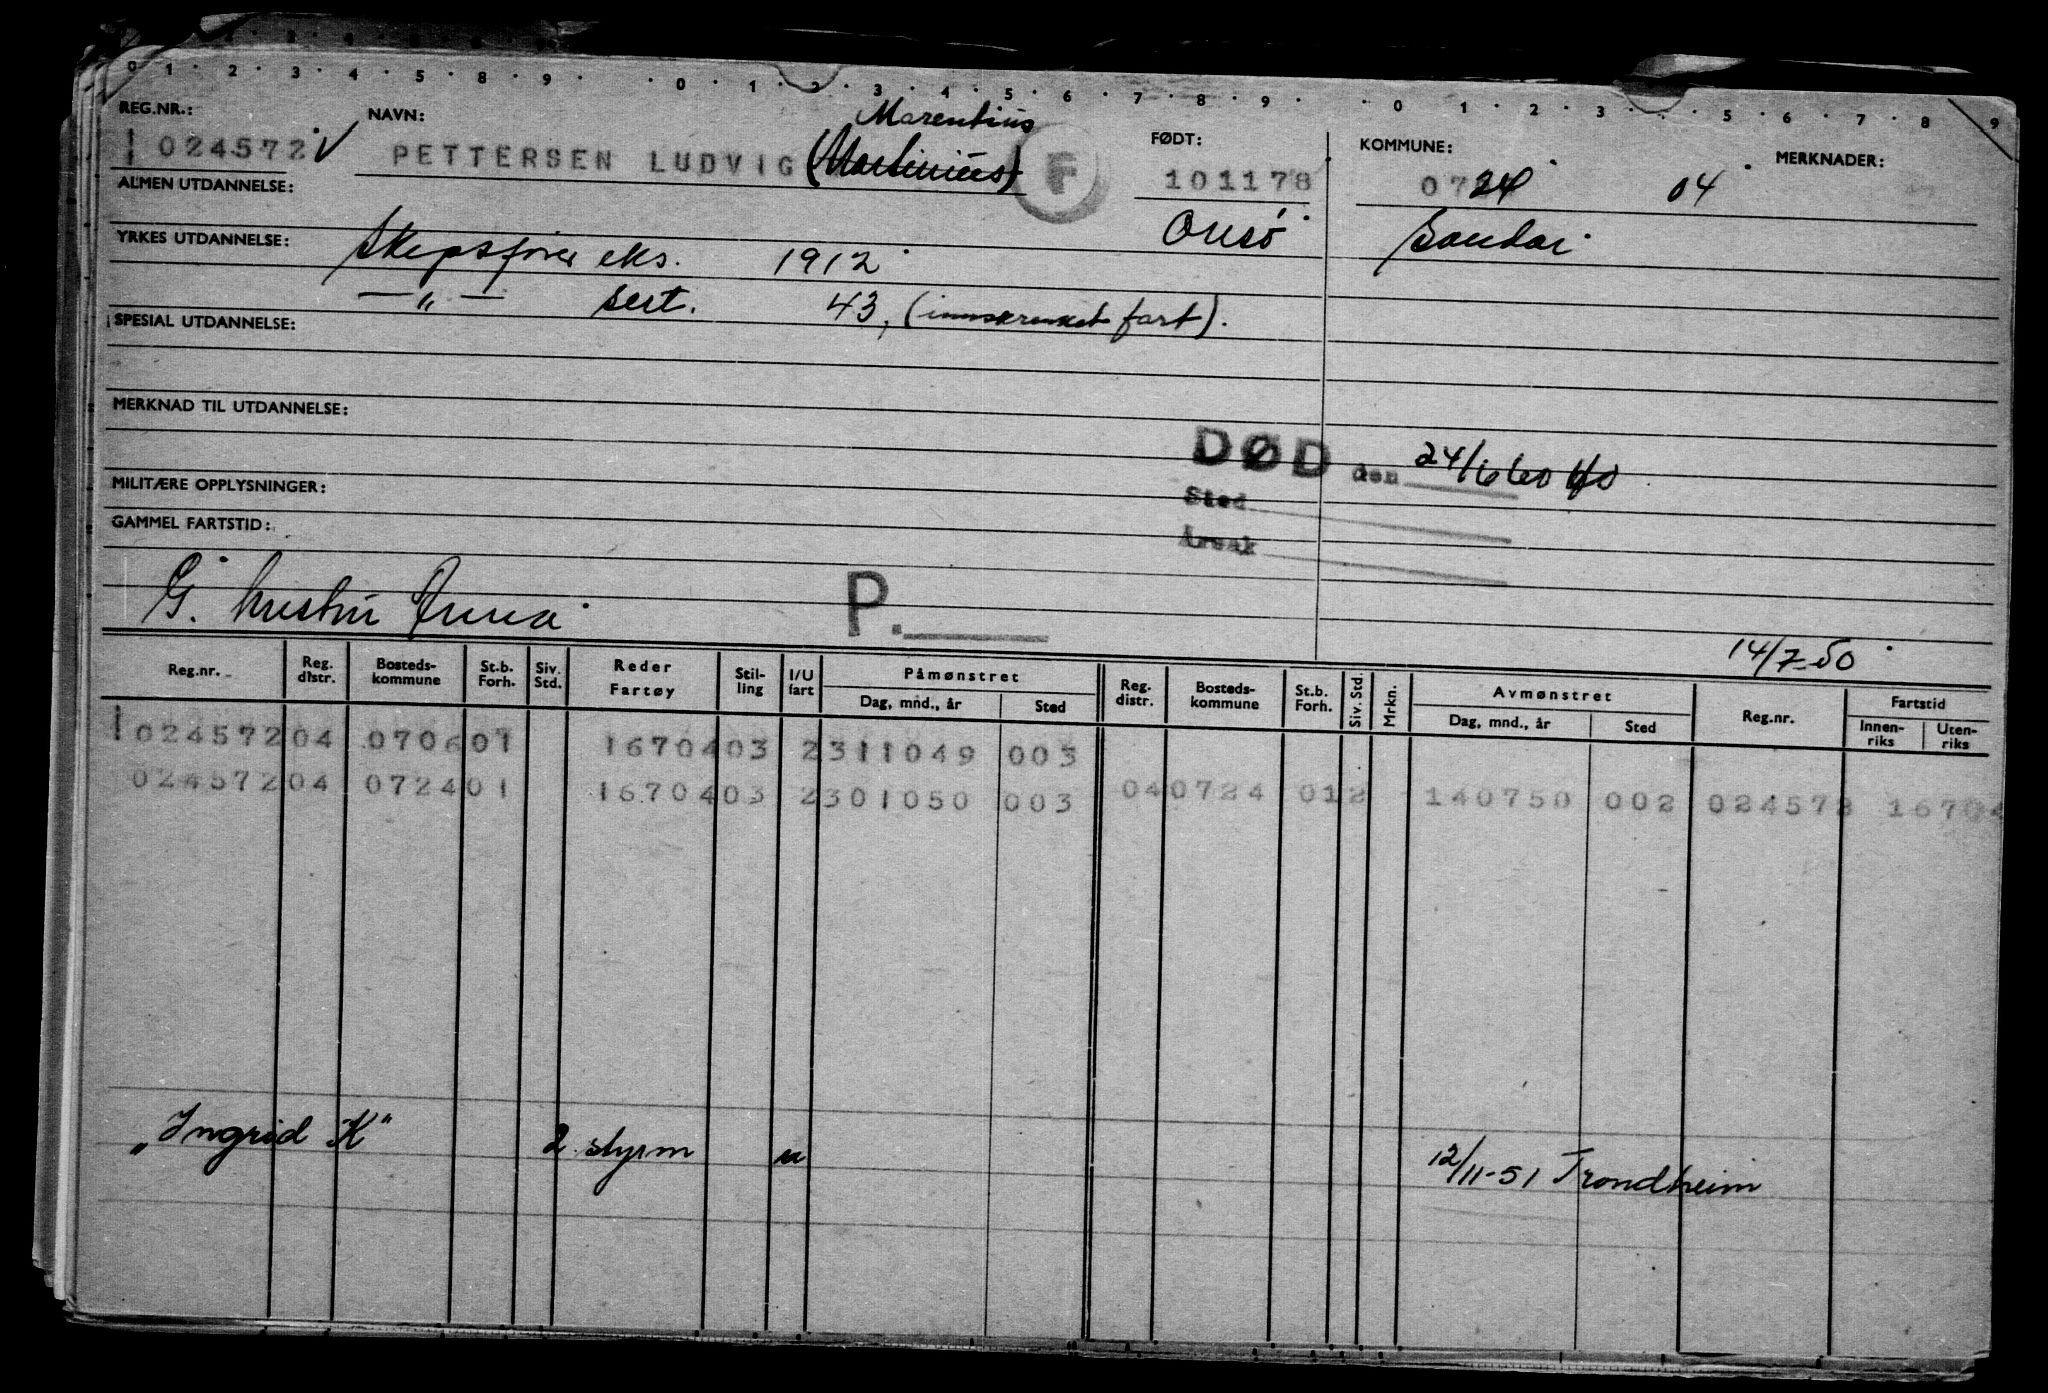 0 1 · 2 · 3 · 4 · 5 · 8 · 9 · · 0 · 1 · 2 · 3 · 4 · 5 · 6 · 7 · 8 · 9 · · 0 · 1 · 2 · 3 · · 5 · 6 · 7 · 8 · 9
REG.NR.: NAVN: Marentius FØDT: KOMMUNE: MERKNADER:
024572 V PETTERSEN LUDVIG (Martinius) F 101178 07 24 04
ALMEN UTDANNELSE:
Onsö Sandar
YRKES UTDANNELSE: Skipsfører eks. 1912
— " — sert. 43, (innskrenket fart).
SPESIAL UTDANNELSE:
MERKNAD TIL UTDANNELSE:
DØD den 24/6 60
MILITÆRE OPPLYSNINGER:
Sted
GAMMEL FARTSTID:
Årsak
G. Anna P.
14/7-50
Reg.nr. Reg. distr. Bosteds- kommune St.b. Forh. Siv. Std. Reder Fartøy Stil- ling I/U fart Påmønstret Dag, mnd., år Sted Reg. distr. Bosteds- kommune St.b. Forh. Siv. Std. Mrkn. Avmønstret Dag, mnd., år Sted Reg.nr. Fartstid Innen- riks Uten- riks
024572 04 0706 01 16704 03 2 311049 003
024572 04 0724 01 16704 03 2 301050 003 04 0724 01 2 140750 002 024573 16704
„Ingrid K" 2. styrm u 12/11-51 Trondheim